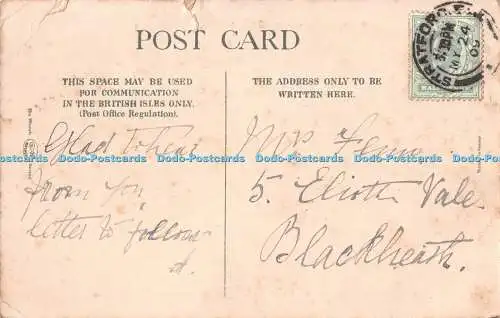 POST CARD
THIS SPACE MAY BE USED
FOR COMMUNICATION
IN THE BRITISH ISLES ONLY.
(Post Office Regulation).
THE ADDRESS ONLY TO BE
WRITTEN HERE.
STRATFORD. E.
5.30PM
24
Glad to hear
from you
letter to follow
A.
Mrs
5. Elioth Vale
Blackheath.
Dodo-Postcards Dodo-Postcards Dodo-Postcards Dodo-Postcards Dodo-Postcards Dodo-Postcards Dodo-Postcards